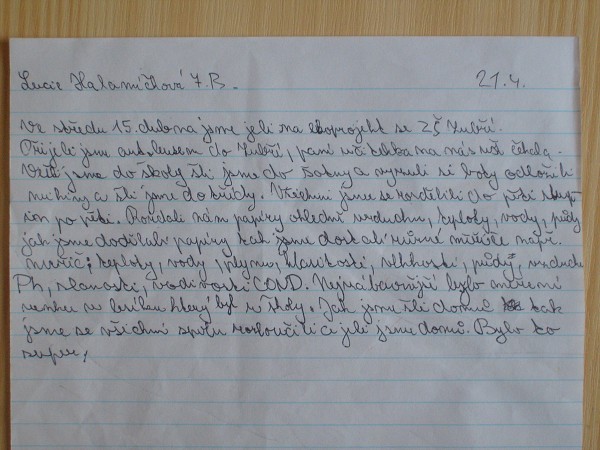 Lucie Halamíčková 7.B. 21.4.
Ve středu 15. dubna jsme jeli na ekoprojekt se ZŠ Zubří.
Přijeli jsme autobusem do Zubří, paní učitelka na nás už čekala.
Vešli jsme do školy šli jsme do šatny a vyzuli si boty odložili
mikiny a šli jsme do třídy. Všichni jsme se rozdělili do pěti skup
in po pěti. Rozdali nám papíry ohledně vzduchu, teploty, vody, půdy
jak jsme dodělali papíry tak jsme dostali různé měřiče např.
měřič; teploty, vody, plynu, hlasitosti, vlhkosti, půdy, vzduchu
Ph, slanosti, vodivosti COND. Nejzábavnější bylo měření
venku ve který byl u školy. Jak jsme šli domů tak
jsme se všichni spolu rozloučili a jeli jsme domů. Bylo to
super,